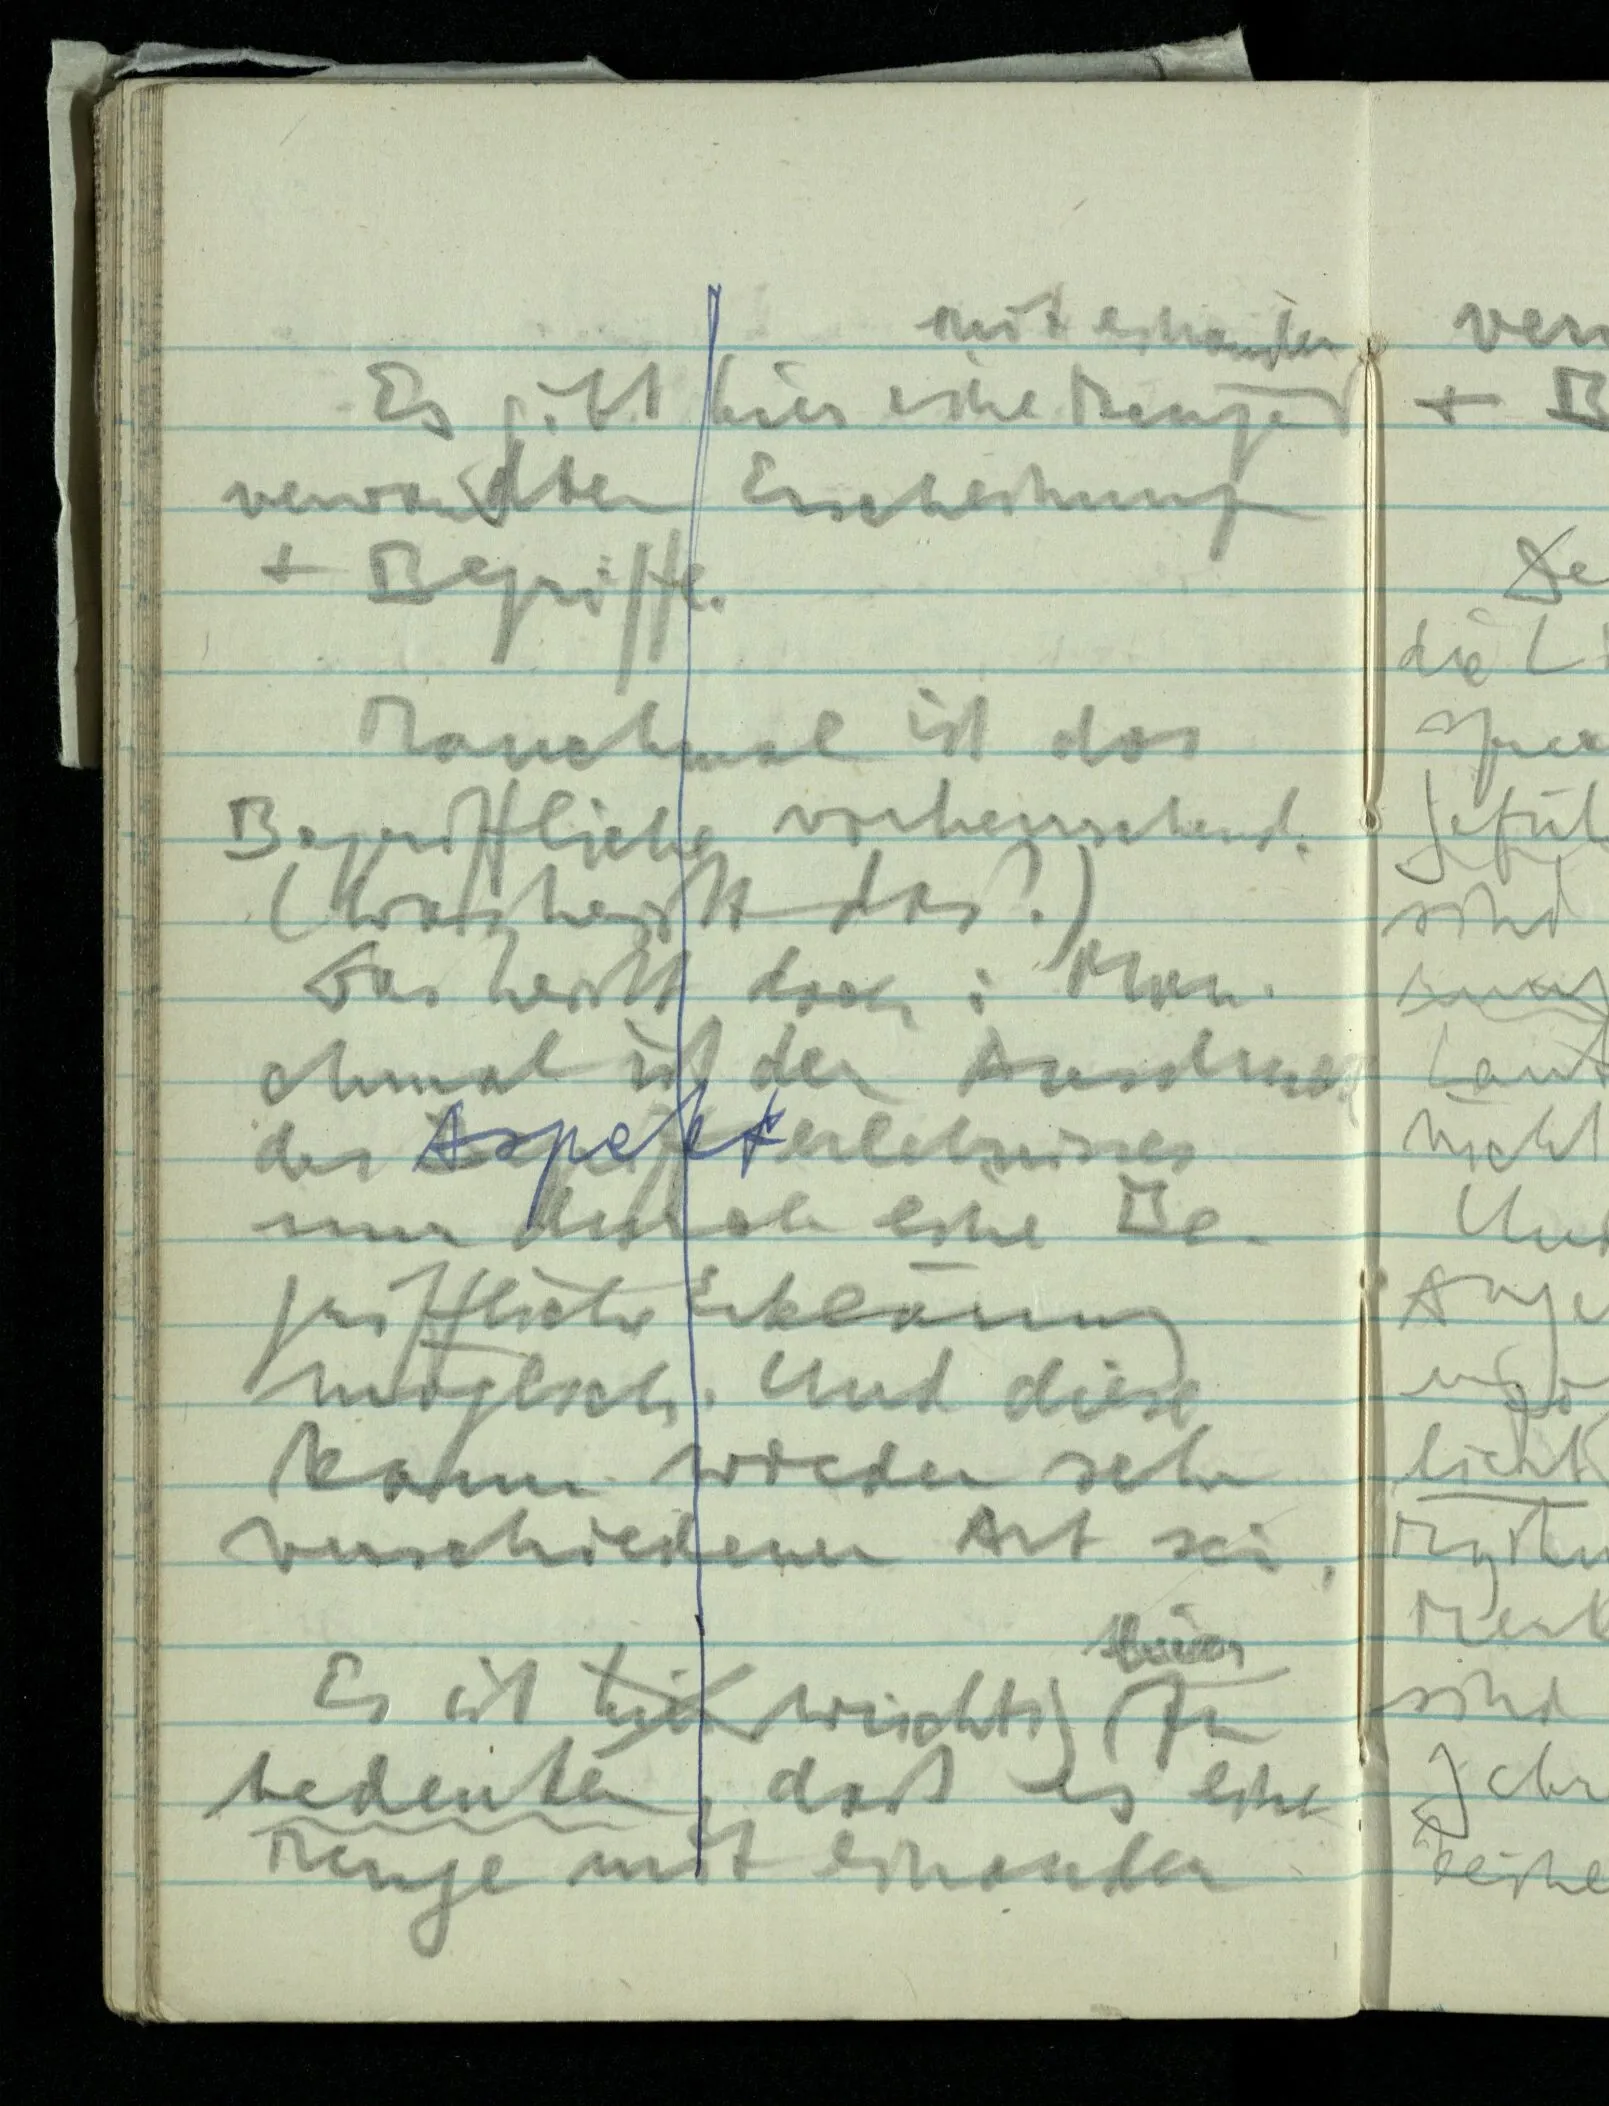 mit einander
Es gibt hier eine Menge
verwandter Erscheinungen
+ Begriffe.
Manchmal ist das
Begriffliche vorherrschend.
(Was heißt das?)
Das heißt doch: Man-
chmal ist der Ausdruck
des Aspekterlebnisses
nur durch eine Be-
griffliche Erklärung
möglich. Und diese
kann wieder sehr
verschiedener Art sein.
hier
Es ist hier wichtig zu
bedenken, daß es eine
Menge mit einander
ver
+ B
De
die L
sind
Laut
nicht
Und
licht
sind